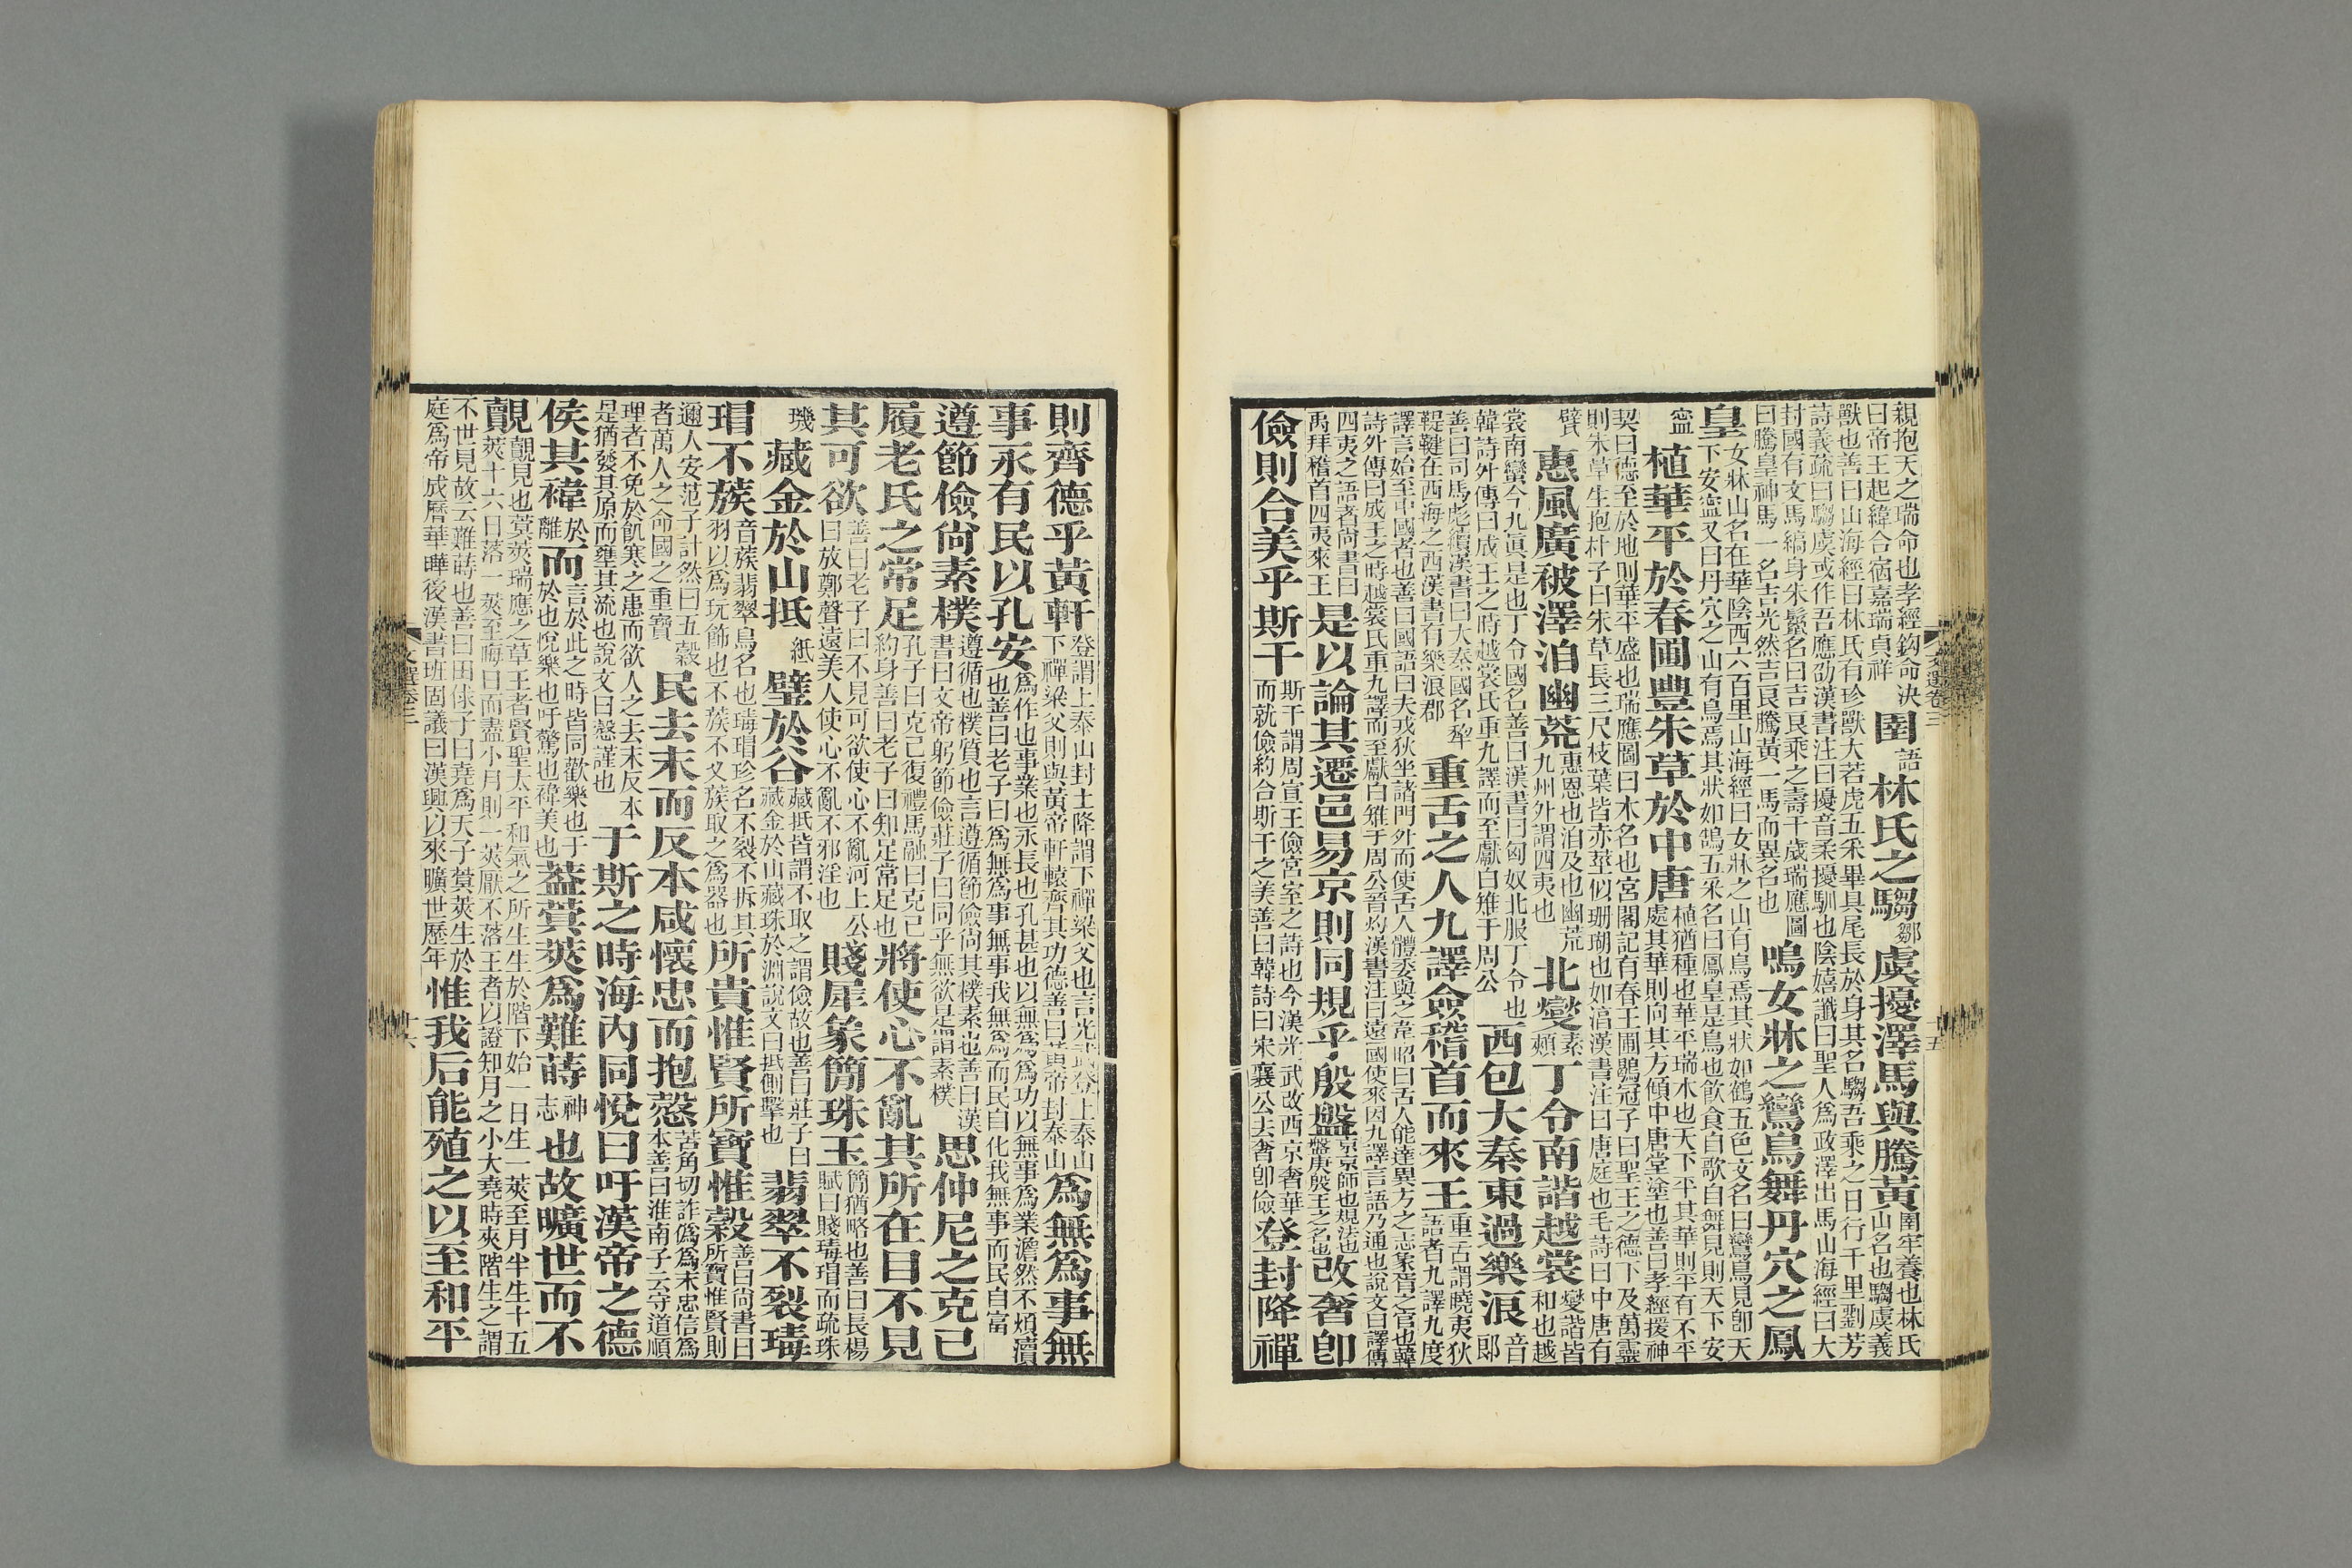 親抱天之瑞命也孝經鈎命决
曰帝王起緯合宿嘉瑞貞祥
圉語林氏之騶鄒虞擾澤馬與騰黃
圉牢養也林氏
山名也騶虞義
獸也善曰山海經曰林氏有珍獸大若虎五采畢具尾長於身其名騶吾乘之日行千里劉芳
詩義疏曰騶虞或作吾應劭漢書注曰擾音柔擾馴也陰嬉讖曰聖人爲政澤出馬山海經曰大
封國有文馬縞身朱鬣名曰吉良乘之壽千歲瑞應圖
曰騰皇神馬一名吉光然吉良騰黃一馬而異名也
鳴女牀之鸞鳥舞丹穴之鳳
皇
女牀山名在華陰西六百里山海經曰女牀之山有鳥焉其狀如鶴五色文名曰鸞鳥見卽天
下安寍又曰丹穴之山有鳥焉其狀如鵠五采名曰鳳皇是鳥也飮食自歌自舞見則天下安
寍
植華平於春圃豐朱草於中唐
植猶種也華平瑞木也天下平其華則平有不平
處其華則向其方傾中唐堂塗也善曰孝經援神
契曰德至於地則華平盛也瑞應圖曰木名也宮閣記有春王圃鶡冠子曰聖王之德下及萬靈
則朱草生抱朴子曰朱草長三尺枝葉皆赤莖似珊瑚也如淳漢書注曰唐庭也毛詩曰中唐有
甓
惠風廣被澤洎幽荒
惠恩也洎及也幽荒
九州外謂四夷也
北燮素頰丁令南諧越裳
燮諧皆
和也越
裳南蠻今九眞是也丁令國名善曰漢書曰匈奴北服丁令也
韓詩外傳曰成王之時越裳氏重九譯而至獻白雉于周公
西包大秦東過樂浪音郎
善曰司馬彪續漢書曰大秦國名犂
鞮鞬在西海之西漢書有樂浪郡
重舌之人九譯僉稽首而來王
重舌謂曉夷狄
語者九譯九度
譯言始至中國者也善曰國語曰夫戎狄坐諸門外而使舌人體委與之韋昭曰舌人能達異方之志象胥之官也韓
詩外傳曰成王之時越裳氏重九譯而至獻白雉于周公晉灼漢書注曰遠國使來因九譯言語乃通也說文曰譯傳
四夷之語者尚書曰
禹拜稽首四夷來王
是以論其遷邑易京則同規乎殷盤
京京師也規法也
盤庚殷王之名也
改奢卽
儉則合美乎斯干
斯干謂周宣王儉宮室之詩也今漢光武改西京奢華
而就儉約合斯干之美善曰韓詩曰宋襄公去奢卽儉
登封降禪
則齊德乎黃軒
登謂上泰山封土降謂下禪梁父也言光武登上泰山
下禪梁父則與黃帝軒轅齊其功德善曰黃帝封泰山
爲無爲事無
事永有民以孔安
爲作也事業也永長也孔甚也以無爲爲功以無事爲業澹然不煩瀆
也善曰老子曰爲無爲事無事我無爲而民自化我無事而民自富
遵節儉尚素樸
遵循也樸質也言遵循節儉尚其樸素也善曰漢
書曰文帝躬節儉莊子曰同乎無欲是謂素樸
思仲尼之克己
履老氏之常足
孔子曰克己復禮馬融曰克己
約身善曰老子曰知足常足也
將使心不亂其所在目不見
其可欲
善曰老子曰不見可欲使心不亂河上公
曰放鄭聲遠美人使心不亂不邪淫也
賤犀象簡珠玉
簡猶略也善曰長楊
賦曰賤瑇瑁而疏珠
璣
藏金於山抵紙璧於谷
藏抵皆謂不取之謂儉故也善曰莊子曰
藏金於山藏珠於淵說文曰抵側擊也
翡翠不裂瑇
瑁不蔟
音蔟翡翠鳥名也瑇瑁珍名不裂不拆其
羽以爲玩飾也不蔟不叉蔟取之爲器也
所貴惟賢所寶惟穀
善曰尚書曰
所寶惟賢則
邇人安范子計然曰五穀
者萬人之命國之重寶
民去末而反本咸懷忠而抱慤
苦角切詐僞爲末忠信爲
本善曰淮南子云守道順
理者不免於飢寒之患而欲人之去末反本
是猶發其原而壅其流也說文曰慤謹也
于斯之時海內同悅曰吁漢帝之德
侯其禕於離而
言於此之時皆同歡樂也于
於也悅樂也吁驚也禕美也
蓋蓂莢爲難蒔神志也故曠世而不
覿
覿見也蓂莢瑞應之草王者賢聖太平和氣之所生生於階下始一日生一莢至月半生十五
莢十六日落一莢至晦日而盡小月則一莢厭不落王者以證知月之小大堯時夾階生之謂
不世見故云難蒔也善曰田俅子曰堯爲天子蓂莢生於
庭爲帝成曆華曄後漢書班固議曰漢興以來曠世歷年
惟我后能殖之以至和平